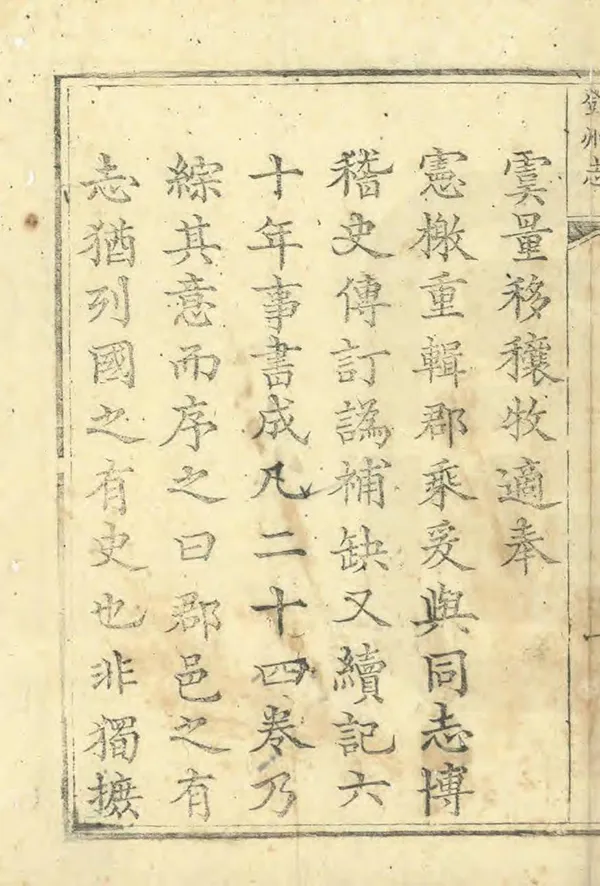 鄧州志
虞量移穰牧適奉
憲檄重輯郡乘爰與同志博
稽史傳訂譌補缺又續記六
十年事書成凡二十四卷乃
綜其意而序之曰郡邑之有
志猶列國之有史也非獨摭